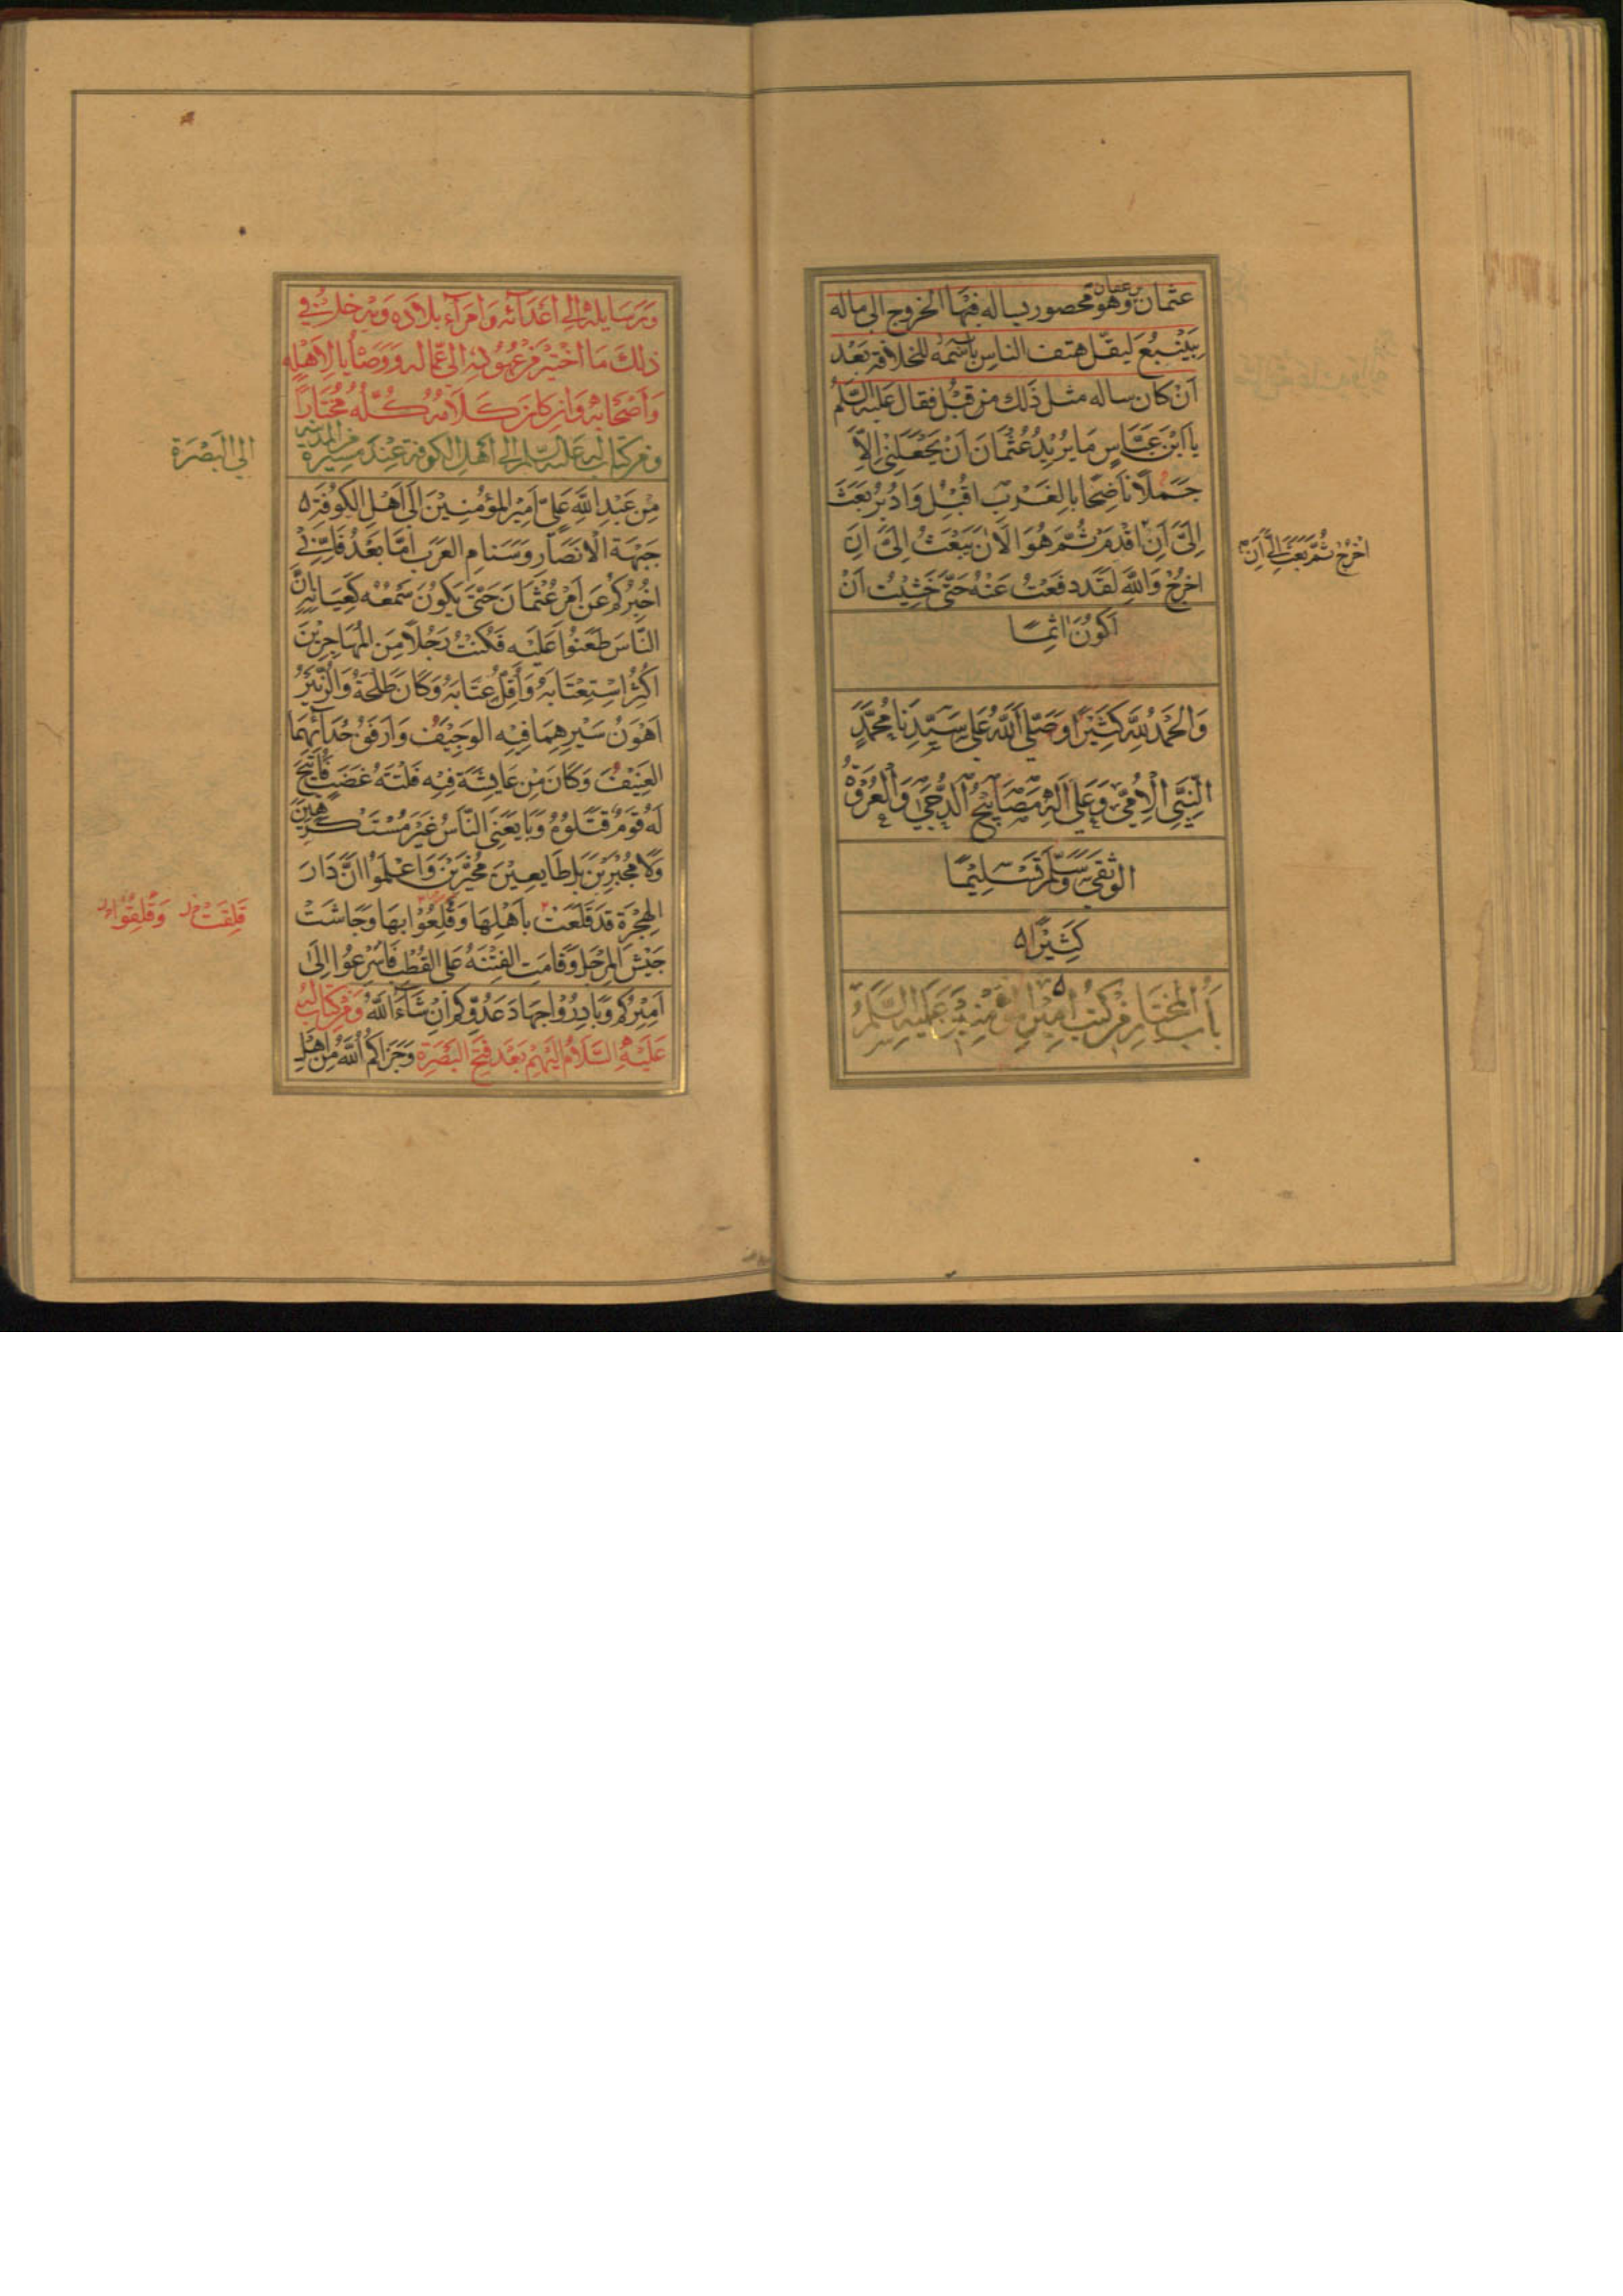 عثمان بن عفان وهو محصور يساله فيها الخروج الى ماله
بِيَنْبُعَ ليقل هتف الناس باسمه للخلافة بَعْد
اَنْ كان ساله مثل ذٰلك من قبْل فقال عليه السّلم
يا ابْنَ عَبَّاسٍ مَا يُرِيْدُ عُثْمَانَ اَنْ يَجْعَلَنِىْ اِلَّا
جَمَلًا نَاضِحًا بِالغَرْبِ اَقْبِلْ وَاَدْبِرْ بَعَثَ
اِلَىَّ اَنْ اَقْدَمَ ثُمَّ هُوَ الْاٰنَ يَبْعَثُ اِلَىَّ اَنْ
اخرُجَ وَاللّٰهِ لَقَدْ دفَعْتُ عَنْهُ حَتّٰى خَشِيْتُ اَنْ
اَكُوْنَ اٰثِمًا
اخرُجَ ثُمَّ بَعَثَ اِلَىَّ اَنْ
وَالحَمْدُ لِلّٰهِ كَثِيْرًا وَصَلَّى اللّٰهُ عَلٰى سَيِّدِنَا مُحَمَّدٍ
النَّبِىِّ الْاُمِّىِّ وَعَلٰى اٰلِهٖ مَصَابِيْحِ الدُّجٰى وَالْعُرْوَةِ
الوُثْقٰى وَسَلَّمَ تَسْلِيْمًا
كَثِيْرًا
بَابُ المُخْتَارِ مِنْ كتُبِ اَمِيْرِ المُؤْمِنِيْنَ عَلَيْهِ السَّلَمُ
وَرَسَايِلِهٖ اِلٰى اَعْدَآئِهٖ وَاُمَرَآءِ بِلَادِهٖ وَيَدْخلُ فِى
ذٰلِكَ مَا اخْتِيْرَ مِنْ عُهُوْدِهٖ اِلٰى عُمَّالِهٖ وَوَصَايَا لِاَهْلِهٖ
وَاَصْحَابِهٖ وَاِنْ كَانَ كَلَامُهُ كُلُّهُ مُخْتَارًا
وَمِنْ كِتَابٍ لَهُ عَلَيْهِ السّلم اِلٰى اَهْلِ الكوفَةِ عِنْدَ مَسِيْرِهٖ مِنَ المدينة
الى البَصْرَة
مِنْ عَبْدِ اللّٰهِ عَلِىٍّ اَمِيْرِ المُؤْمِنِيْنَ اِلٰى اَهْلِ الكُوْفَةِ
جَبْهَةِ الْاَنْصَارِ وَسَنَامِ العَرَبِ اَمَّا بَعْدُ فَاِنِّىْ
اُخْبِرُكُمْ عَنْ اَمْرِ عُثْمَانَ حَتّٰى يَكُوْنَ سَمْعُهُ كَعِيَانِهٖ اِنَّ
النَّاسَ طَعَنُوْا عَلَيْهِ فَكُنْتُ رَجُلًا مِنَ المُهَاجِرِيْنَ
اُكْثِرُ اسْتِعْتَابَهُ وَاُقِلُّ عِتَابَهُ وَكَانَ طَلْحَةُ وَالزُّبَيْرُ
اَهْوَنُ سَيْرِهِمَا فِيْهِ الوَجِيْفُ وَاَرْفَقُ حُدَآئِهِمَا
العَنِيْفُ وَكَانَ مِنْ عَايِشَةَ فِيْهِ فَلْتَةُ غَضَبٍ فَاُتِيْحَ
لَهُ قَوْمٌ قَتَلُوْهُ وَبَايَعَنِى النَّاسُ غَيْرَ مُسْتَكْرَهِيْنَ
وَلَا مُجْبَرِيْنَ بَلْ طَايِعِيْنَ مُخَيَّرِيْنَ وَاعْلَمُوْا اَنَّ دَارَ
الهِجْرَةِ قَدْ قَلَعَتْ بِاَهْلِهَا وَقُلِعُوْا بِهَا وَجَاشَتْ
قَلِقَتْ وَقَلِقُوْا
جَيْشَ المِرْجَلِ وَقَامَتِ الفِتْنَةُ عَلَى القُطْبِ فَاَسْرِعُوْا اِلٰى
اَمِيْرِكُمْ وَبَادِرُوْا جِهَادَ عَدُوِّكُمْ اِنْ شَآءَ اللّٰهُ وَمِنْ كِتَابٍ لَهُ
عَلَيْهِ السَّلَامُ اِلَيْهِمْ بَعْدَ فَتْحِ البَصْرَةِ وَجَزَاكُمُ اللّٰهُ مِنْ اَهْلِ